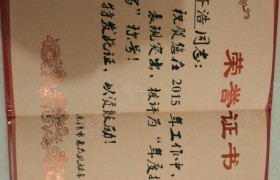 荣誉证书
浩同志:
祝贺您在2015年工作中,
表现突出,被评为“年度
”称号!
特发此证,以资鼓励!